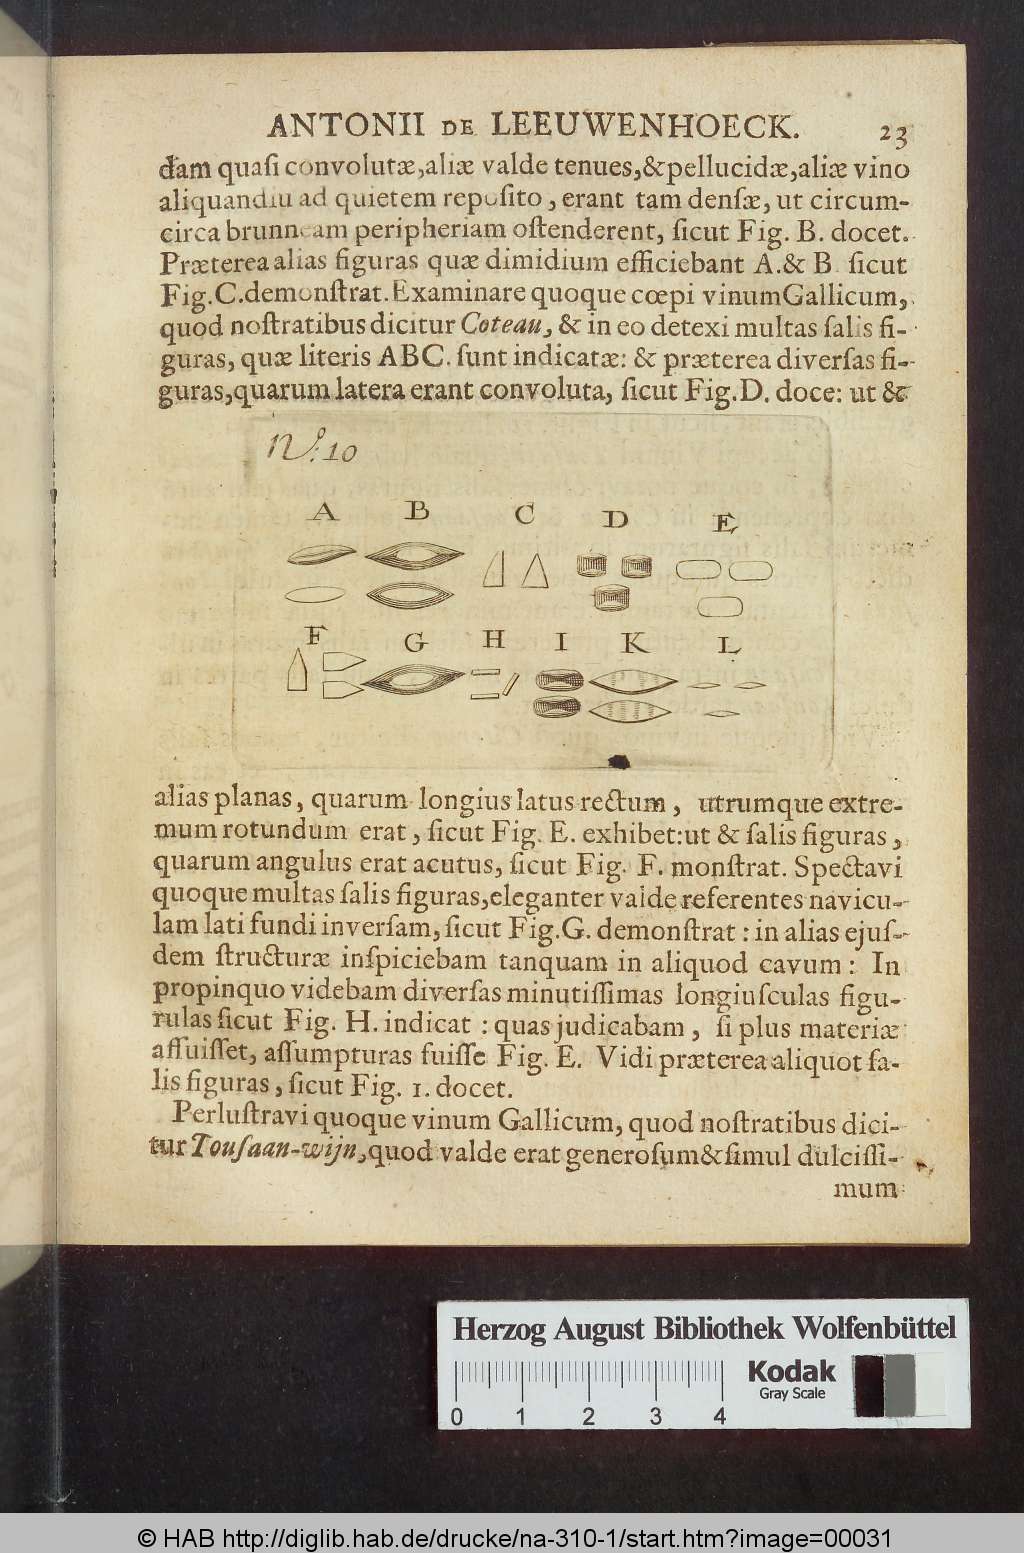 ANTONII DE LEEUWENHOECK. 23
dam quaſi convolutæ,aliæ valde tenues,&pellucidæ,aliæ vino
aliquandiu ad quietem repoſito, erant tam denſæ, ut circum-
circa brunneam peripheriam oſtenderent, ſicut Fig. B. docet.
Præterea alias figuras quæ dimidium efficiebant A.& B ſicut
Fig.C.demonſtrat.Examinare quoque cœpi vinum Gallicum,
quod noſtratibus dicitur Coteau, & in eo detexi multas ſalis fi-
guras, quæ literis ABC. ſunt indicatæ: & præterea diverſas fi-
guras,quarum latera erant convoluta, ſicut Fig.D. doce: ut &
No: 10
A B C D E
F G H I K L
alias planas, quarum longius latus rectum, utrumque extre-
mum rotundum erat, ſicut Fig. E. exhibet:ut & ſalis figuras,
quarum angulus erat acutus, ſicut Fig. F. monſtrat. Spectavi
quoque multas ſalis figuras,eleganter valde referentes navicu-
lam lati fundi inverſam, ſicut Fig.G. demonſtrat: in alias ejuſ-
dem ſtructuræ inſpiciebam tanquam in aliquod cavum: In
propinquo videbam diverſas minutiſſimas longiuſculas figu-
rulas ſicut Fig. H. indicat : quas judicabam, ſi plus materiæ
affuiſſet, aſſumpturas fuiſſe Fig. E. Vidi præterea aliquot ſa-
lis figuras, ſicut Fig. I. docet.
Perluſtravi quoque vinum Gallicum, quod noſtratibus dici-
tur Touſaan-wijn,quod valde erat generoſum&ſimul dulciſſi-
mum
Herzog August Bibliothek Wolfenbüttel
0 1 2 3 4
Kodak
Gray Scale
© HAB http://diglib.hab.de/drucke/na-310-1/start.htm?image=00031